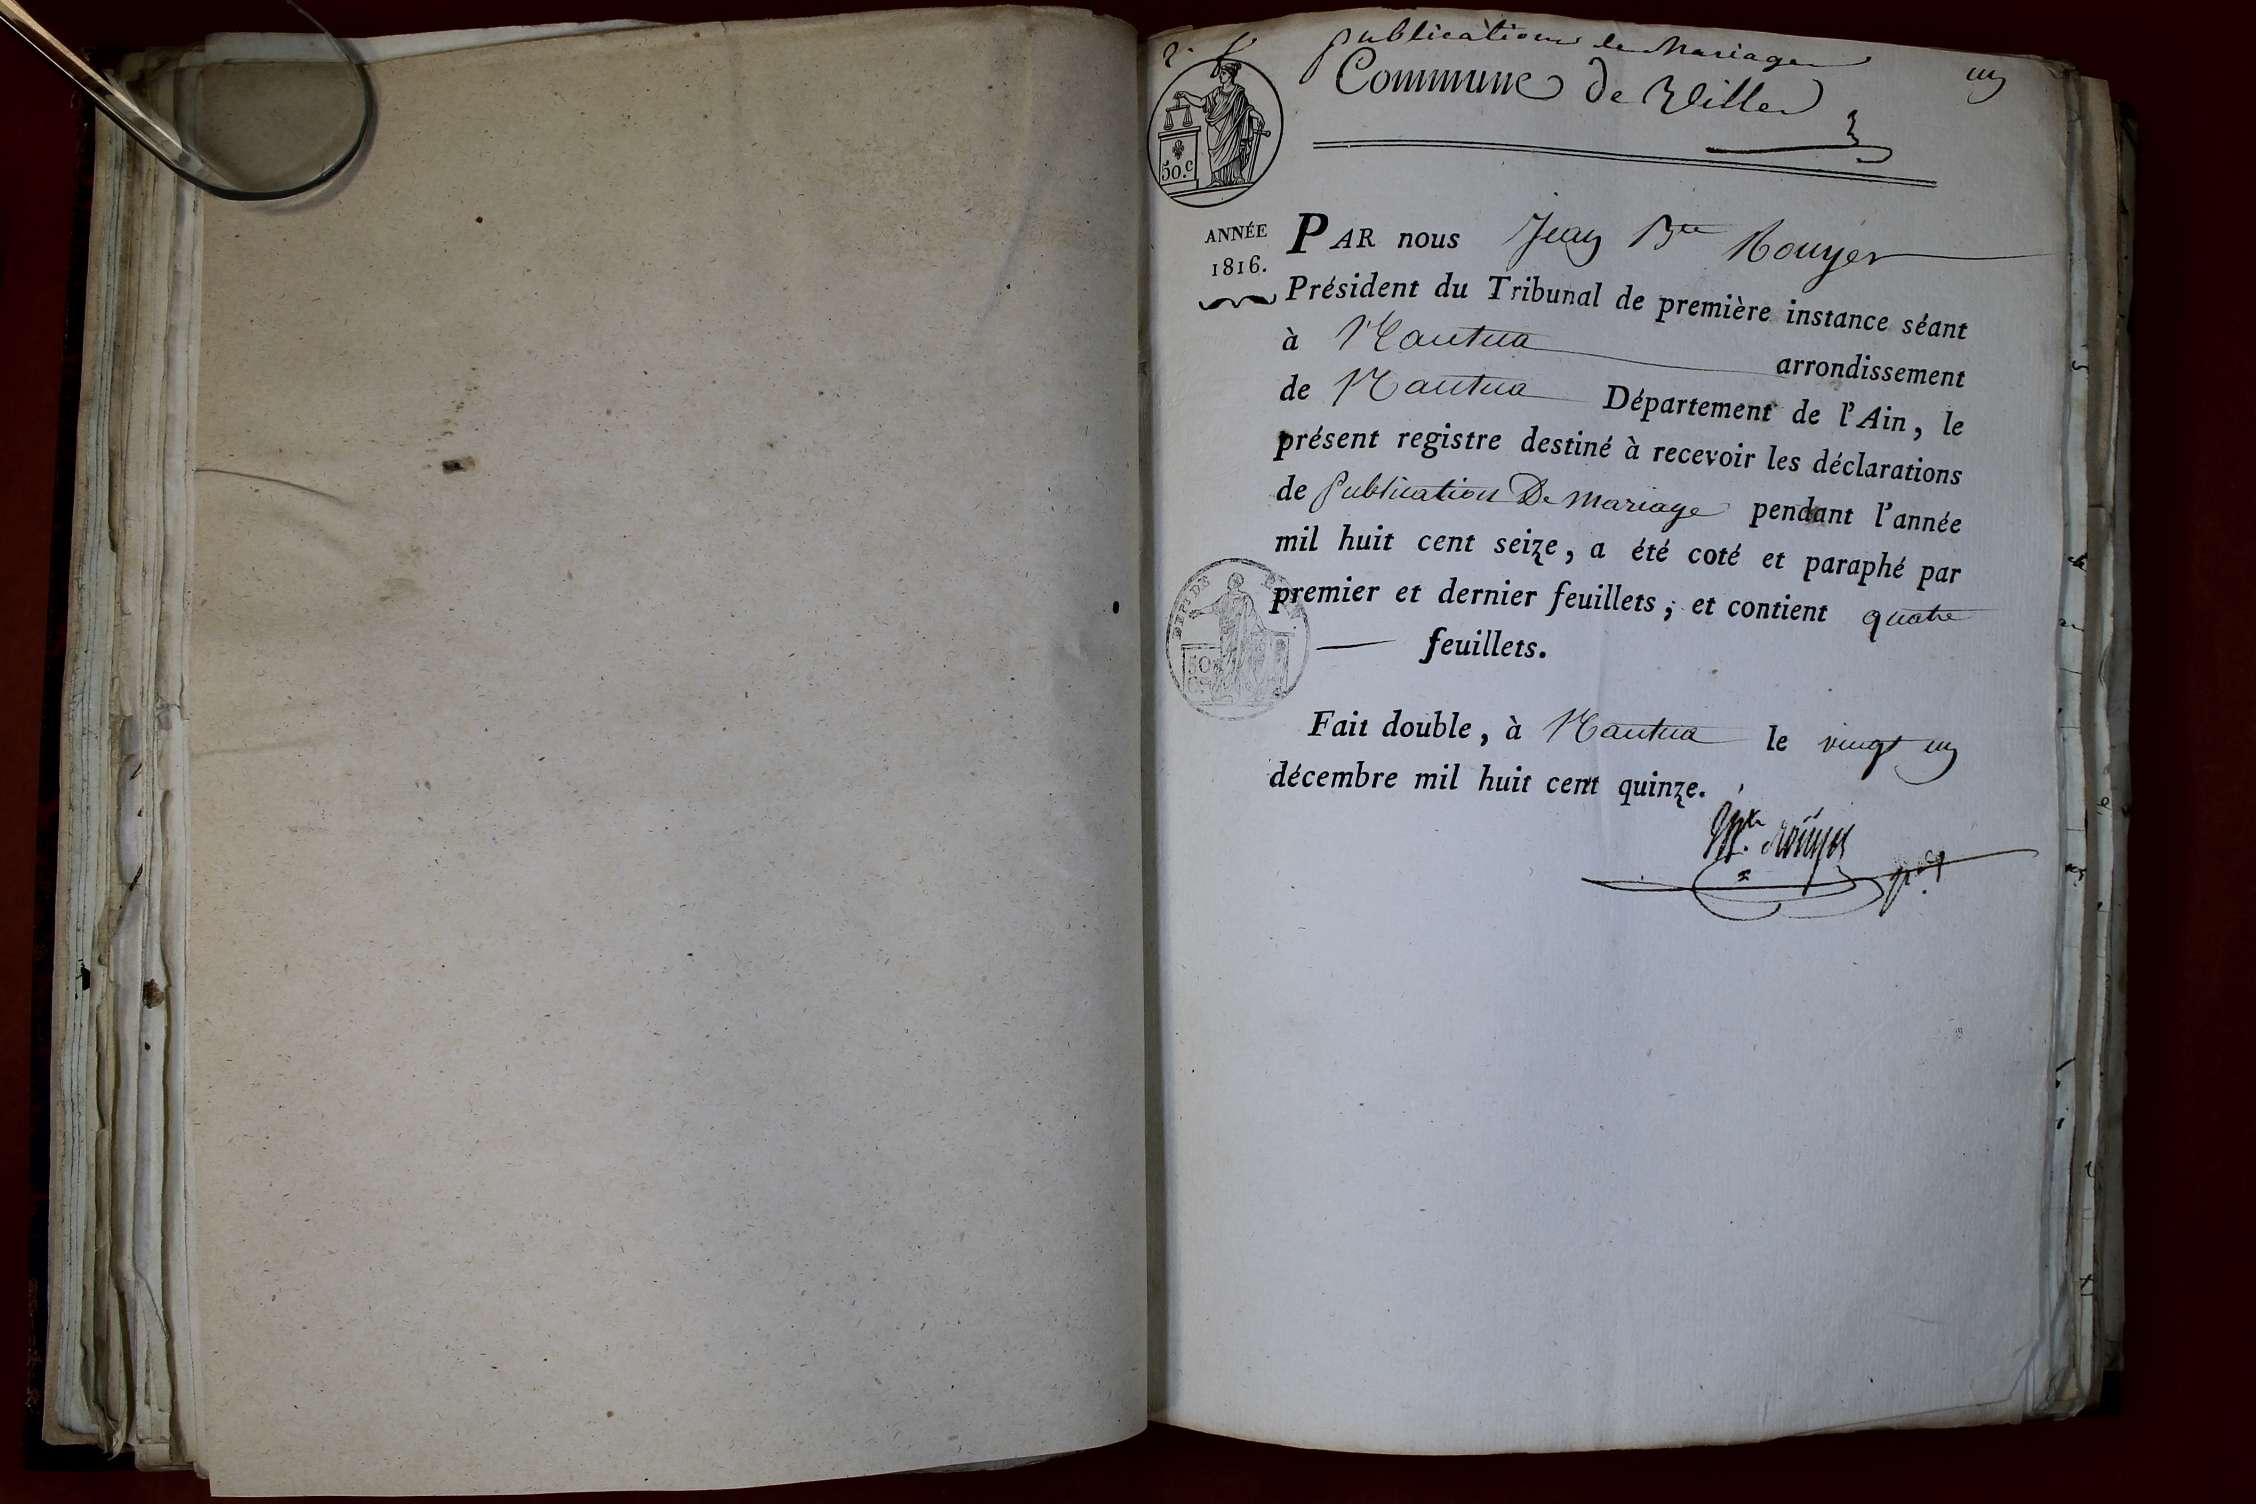 publication de Mariage
un
Commune de Ville
50.c
ANNÉE
1816.
PAR nous Jean Bte Rouyer
Président du Tribunal de première instance séant
à Nantua arrondissement
de Nantua Département de l'Ain, le
présent registre destiné à recevoir les déclarations
de publication De mariage pendant l'année
mil huit cent seize, a été coté et paraphé par
premier et dernier feuillets, et contient quatre
feuillets.
Fait double, à Nantua le vingt un
décembre mil huit cent quinze.
Rouyer